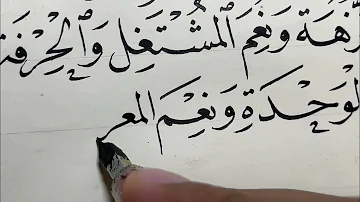 زْهَةَ وَنِعْمَ الْمُشْتَغِلِ وَالْحِرْفَة
لْوَحْدَةِ وَنِعْمَ المعر